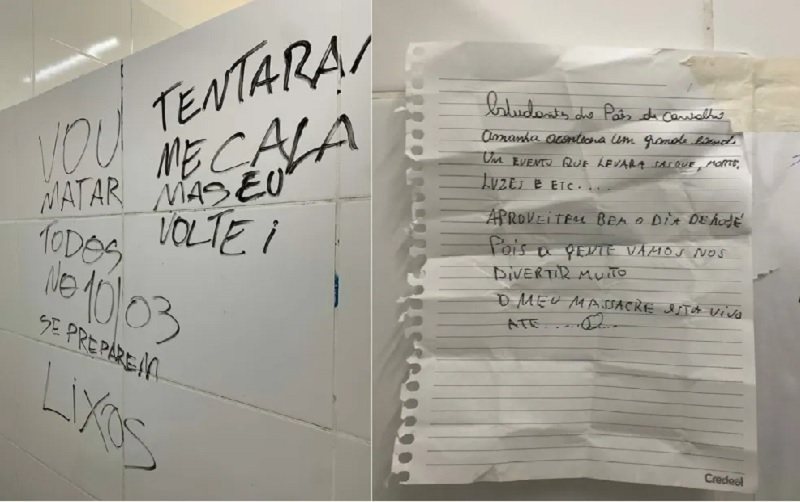 VOU
MATAR
TODOS
NO 10/03
SE PREPAREM
LIXOS
TENTARAM
ME CALA
MAS EU
VOLTEI
Estudantes do Pais de Carvalho
amanha acontecera um grande
UM EVENTO QUE LEVARA SANGUE, MORTE,
LUZES E ETC....
APROVEITEM BEM O DIA DE HOJE
POIS A GENTE VAMOS NOS
DIVERTIR MUITO
O MEU MASSACRE ESTA VIVO
ATE ....
Credeal